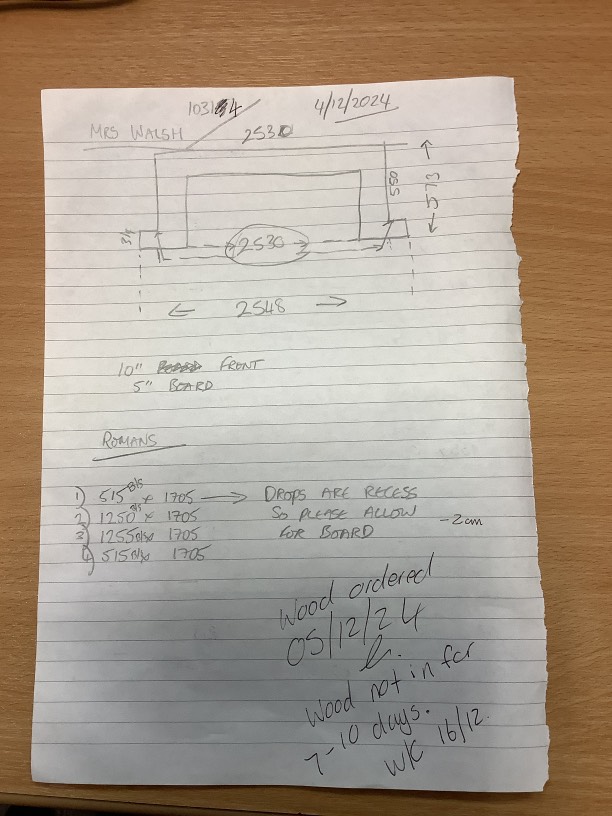 4/12/2024
MRS WALSH
2530
550
573
2530
2548
10" FRONT
5" BOARD
ROMANS
1) 515 B/S x 1705 → DROPS ARE RECESS
2) 1250 B/S x 1705 SO PLEASE ALLOW -2cm
3) 1255 B/S x 1705 FOR BOARD
4) 515 B/S x 1705
Wood ordered
05/12/24
Wood not in for
7-10 days.
W/C 16/12.